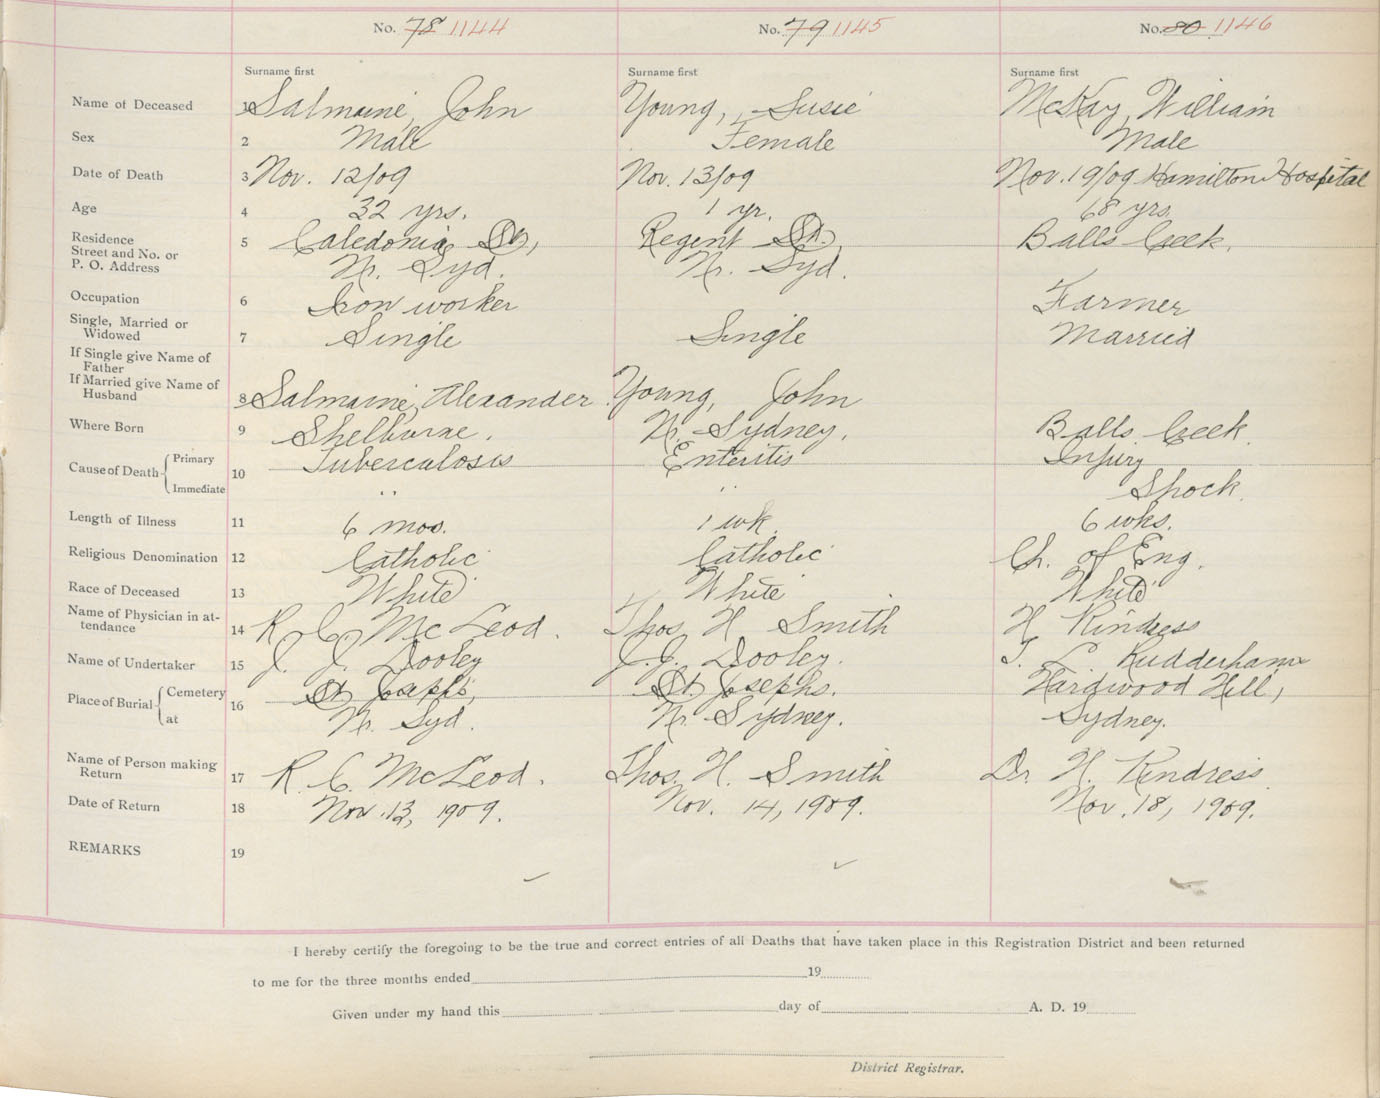 No. 78 1144 No. 79 1145 No. 80 1146
Surname first Surname first Surname first
Name of Deceased 1 Salmaine, John Young, Susie McKay, William
Sex 2 Male Female Male
Date of Death 3 Nov. 12/09 Nov. 13/09 Nov. 19/09 Hamilton Hospital
Age 4 32 yrs. 1 yr. 68 yrs.
Residence
Street and No. or
P. O. Address
5 Caledonia St., Regent St., Balls Creek.
N. Syd. N. Syd.
Occupation 6 Iron worker Farmer
Single, Married or
Widowed
7 Single Single Married
If Single give Name of
Father
If Married give Name of
Husband
8 Salmaine, Alexander Young, John
Where Born 9 Shelburne. N. Sydney. Balls Creek
Cause of Death Primary
Immediate
10 Tuberculosis Enteritis Injury
" " Shock.
Length of Illness 11 6 mos. 1 wk. 6 wks.
Religious Denomination 12 Catholic Catholic Ch. of Eng.
Race of Deceased 13 White White White
Name of Physician in at-
tendance
14 R. C. McLeod. Thos H Smith H Kindress
Name of Undertaker 15 J. J. Dooley J. J. Dooley. T. L. Rudderham
Place of Burial Cemetery
at
16 St Josephs, St Josephs. Hardwood Hill,
N. Syd. N. Sydney. Sydney.
Name of Person making
Return
17 R. C. McLeod. Thos. H. Smith Dr. H. Kendress
Date of Return 18 Nov. 13, 1909. Nov. 14, 1909. Nov. 18, 1909.
REMARKS 19
I hereby certify the foregoing to be the true and correct entries of all Deaths that have taken place in this Registration District and been returned
to me for the three months ended 19
Given under my hand this day of A. D. 19
District Registrar.